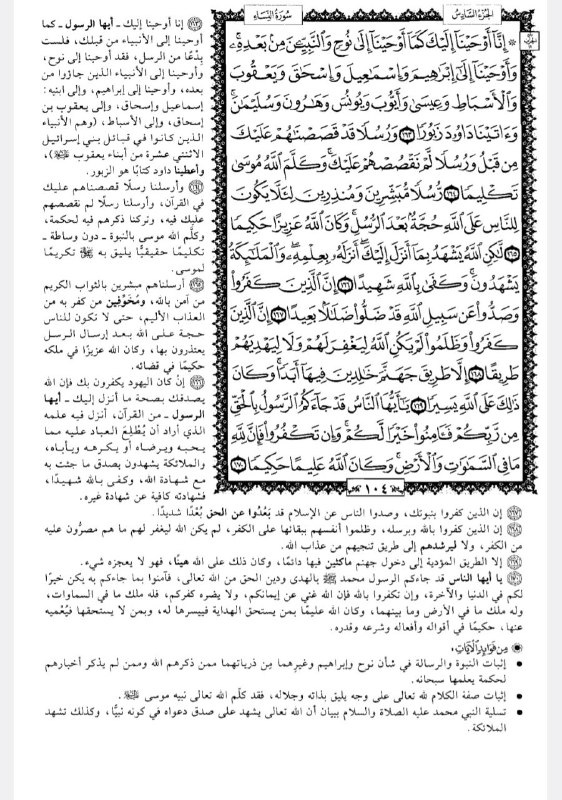 الجزء السادس
سورة النساء
۞ إِنَّا أَوْحَيْنَا إِلَيْكَ كَمَا أَوْحَيْنَا إِلَىٰ نُوحٍ وَالنَّبِيِّينَ مِنْ بَعْدِهِ ۚ
وَأَوْحَيْنَا إِلَىٰ إِبْرَاهِيمَ وَإِسْمَاعِيلَ وَإِسْحَاقَ وَيَعْقُوبَ
وَالْأَسْبَاطِ وَعِيسَىٰ وَأَيُّوبَ وَيُونُسَ وَهَارُونَ وَسُلَيْمَانَ ۚ
وَءَاتَيْنَا دَاوُودَ زَبُورًا ١٦٣ وَرُسُلًا قَدْ قَصَصْنَاهُمْ عَلَيْكَ
مِنْ قَبْلُ وَرُسُلًا لَمْ نَقْصُصْهُمْ عَلَيْكَ ۚ وَكَلَّمَ اللَّهُ مُوسَىٰ
تَكْلِيمًا ١٦٤ رُسُلًا مُبَشِّرِينَ وَمُنْذِرِينَ لِئَلَّا يَكُونَ
لِلنَّاسِ عَلَى اللَّهِ حُجَّةٌ بَعْدَ الرُّسُلِ ۚ وَكَانَ اللَّهُ عَزِيزًا حَكِيمًا
١٦٥ لَٰكِنِ اللَّهُ يَشْهَدُ بِمَا أَنْزَلَ إِلَيْكَ ۖ أَنْزَلَهُ بِعِلْمِهِ ۖ وَالْمَلَائِكَةُ
يَشْهَدُونَ ۚ وَكَفَىٰ بِاللَّهِ شَهِيدًا ١٦٦ إِنَّ الَّذِينَ كَفَرُوا
وَصَدُّوا عَنْ سَبِيلِ اللَّهِ قَدْ ضَلُّوا ضَلَالًا بَعِيدًا ١٦٧ إِنَّ الَّذِينَ
كَفَرُوا وَظَلَمُوا لَمْ يَكُنِ اللَّهُ لِيَغْفِرَ لَهُمْ وَلَا لِيَهْدِيَهُمْ
طَرِيقًا ١٦٨ إِلَّا طَرِيقَ جَهَنَّمَ خَالِدِينَ فِيهَا أَبَدًا ۚ وَكَانَ
ذَٰلِكَ عَلَى اللَّهِ يَسِيرًا ١٦٩ يَا أَيُّهَا النَّاسُ قَدْ جَاءَكُمُ الرَّسُولُ بِالْحَقِّ
مِنْ رَبِّكُمْ فَآمِنُوا خَيْرًا لَكُمْ ۚ وَإِنْ تَكْفُرُوا فَإِنَّ لِلَّهِ
مَا فِي السَّمَاوَاتِ وَالْأَرْضِ ۚ وَكَانَ اللَّهُ عَلِيمًا حَكِيمًا ١٧٠
١٠٤
١٦٣ إنا أوحينا إليك ـ أيها الرسول ـ كما
أوحينا إلى الأنبياء من قبلك، فلست
بِدْعًا من الرسل، فقد أوحينا إلى نوح،
وأوحينا إلى الأنبياء الذين جاؤوا من
بعده، وأوحينا إلى إبراهيم، وإلى ابنيه:
إسماعيل وإسحاق، وإلى يعقوب بن
إسحاق، وإلى الأسباط، (وهم الأنبياء
الذين كانوا في قبائل بني إسرائيل
الاثنتي عشرة من أبناء يعقوب ﵇)،
وأعطينا داود كتابًا هو الزبور.
١٦٤ وأرسلنا رسلًا قصصناهم عليك
في القرآن، وأرسلنا رسلًا لم نقصصهم
عليك فيه، وتركنا ذكرهم فيه لحكمة،
وكلَّم الله موسى بالنبوة ـ دون وساطة ـ
تكليمًا حقيقيًّا يليق به ﷻ تكريمًا
لموسى.
١٦٥ أرسلناهم مبشرين بالثواب الكريم
من آمن بالله، ومُخَوِّفِين من كفر به من
العذاب الأليم، حتى لا تكون للناس
حجة على الله بعد إرسال الرسل
يعتذرون بها، وكان الله عزيزًا في ملكه
حكيمًا في قضائه.
١٦٦ إنْ كان اليهود يكفرون بك فإن الله
يصدقك بصحة ما أنزل إليك ـ أيها
الرسول ـ من القرآن، أنزل فيه علمه
الذي أراد أن يُطْلِعَ العباد عليه مما
يحبه ويرضاه أو يكرهه ويأباه،
والملائكة يشهدون بصدق ما جئت به
مع شهادة الله، وكفى بالله شهيدًا،
فشهادته كافية عن شهادة غيره.
١٦٧ إن الذين كفروا بنبوتك، وصدوا الناس عن الإسلام قد بَعُدُوا عن الحق بُعْدًا شديدًا.
١٦٨ إن الذين كفروا بالله وبرسله، وظلموا أنفسهم ببقائها على الكفر، لم يكن الله ليغفر لهم ما هم مصرُّون عليه
من الكفر، ولا ليرشدهم إلى طريق تنجيهم من عذاب الله.
١٦٩ إلا الطريق المؤدية إلى دخول جهنم ماكثين فيها دائمًا، وكان ذلك على الله هينًا، فهو لا يعجزه شيء.
١٧٠ يا أيها الناس قد جاءكم الرسول محمد ﷺ بالهدى ودين الحق من الله تعالى، فآمنوا بما جاءكم به يكن خيرًا
لكم في الدنيا والآخرة، وإن تكفروا بالله فإن الله غني عن إيمانكم، ولا يضره كفركم، فله ملك ما في السماوات،
وله ملك ما في الأرض وما بينهما، وكان الله عليمًا بمن يستحق الهداية فييسرها له، وبمن لا يستحقها فيُعْميه
عنها، حكيمًا في أقواله وأفعاله وشرعه وقدره.
من فوائد الآيات:
• إثبات النبوة والرسالة في شأن نوح وإبراهيم وغيرهما من ذرياتهما ممن ذكرهم الله وممن لم يذكر أخبارهم
لحكمة يعلمها سبحانه.
• إثبات صفة الكلام لله تعالى على وجه يليق بذاته وجلاله، فقد كلَّم الله تعالى نبيه موسى ﵇.
• تسلية النبي محمد عليه الصلاة والسلام ببيان أن الله تعالى يشهد على صدق دعواه في كونه نبيًّا، وكذلك تشهد
الملائكة.